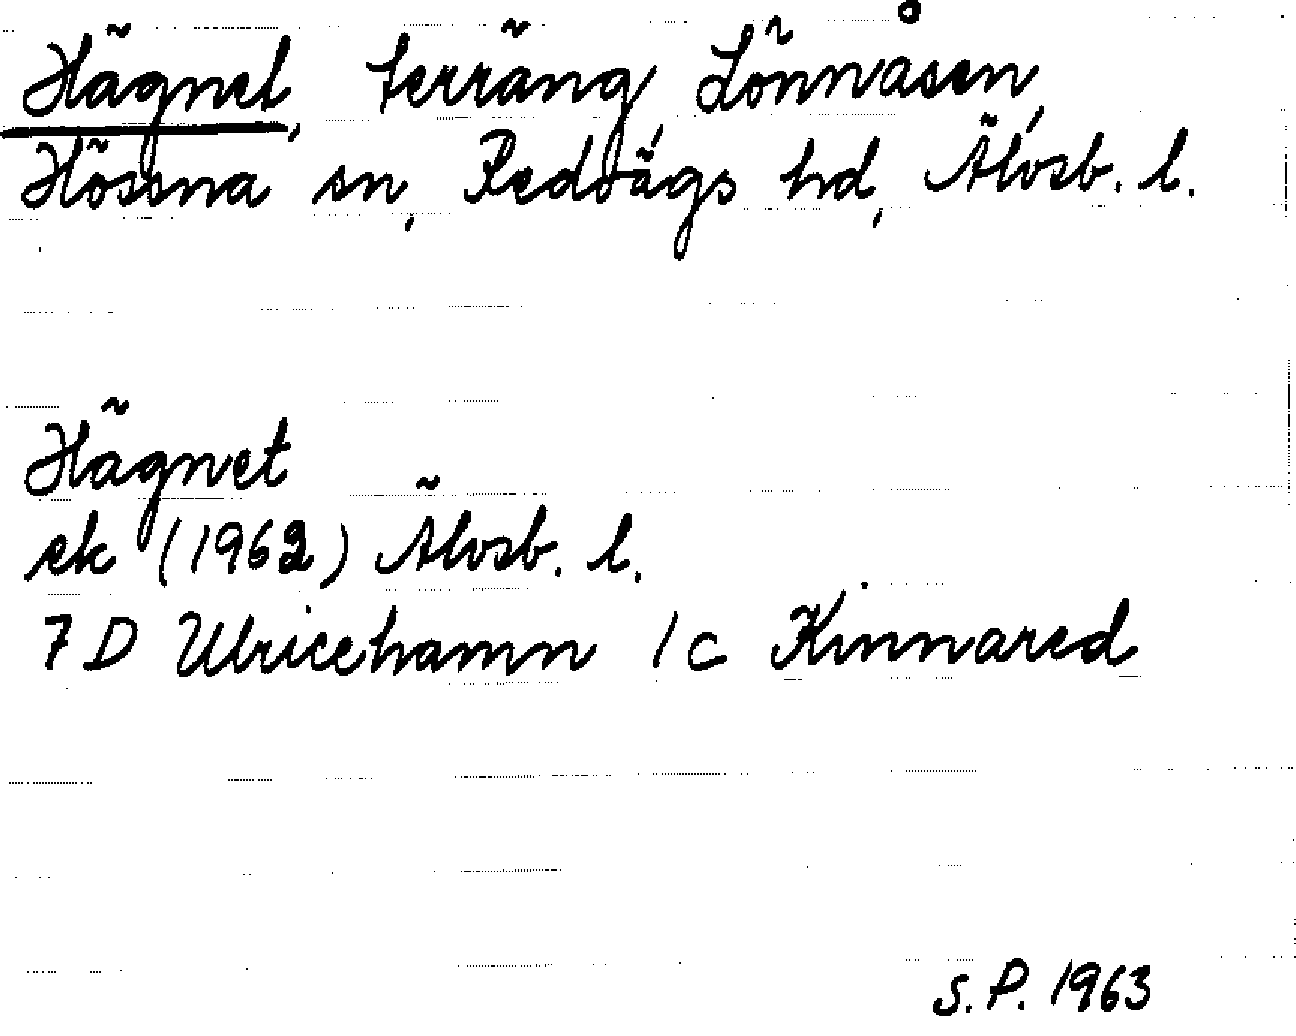 Hägnet, terräng, Lönnåsen,
Hössna sn, Redvägs hd, Älvsb. l.
Hägnet
ek (1962) Älvsb. l.
7 D Ulricehamn 1 c Kinnared
S. P. 1963